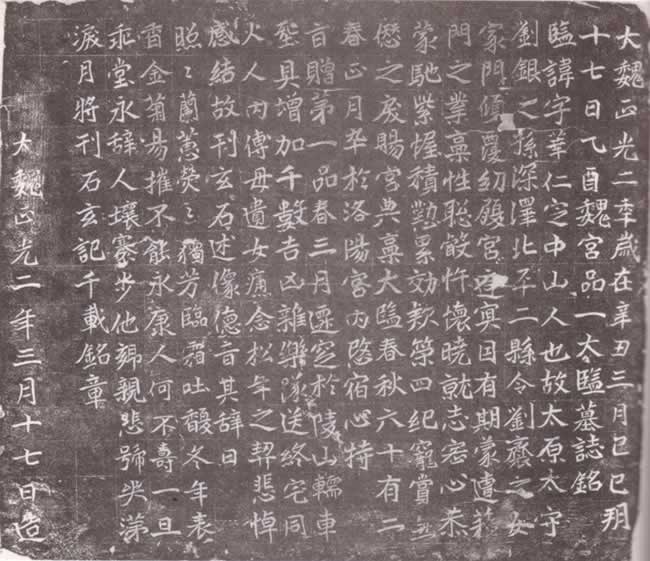 大魏正光二年歲在辛丑三月己巳朔
十七日乙酉魏宮品一大監墓誌銘
監諱字華仁定中山人也故太原太守
劉銀之孫深澤北平二縣令劉齋之女
家門傾覆幼履宮庭冥因有期蒙遭
門之業稟性聰敏忤懷曉就志密心恭
蒙馳紫幄積懃累効款策四紀寵賞無
愆之戾賜宮典稟大監春秋六十有二
春正月卒於洛陽宮內陰宿心持
旨贈第一品春三月遷窆於陵山轜車
塋具增加千數吉凶雜樂隊送終宅同
火人內傅母遺女痛念松年之契悲悼
感結故刊玄石述像德音其辭曰
照照蘭蕙熒熒獨芳臨霜吐馥冬年表
香金菊易摧不能永康人何不壽一旦
乖堂永辭人壤蹇步他鄉親悲號哭涕
淚月將刊石玄記千載銘章
大魏正光二年三月十七日造